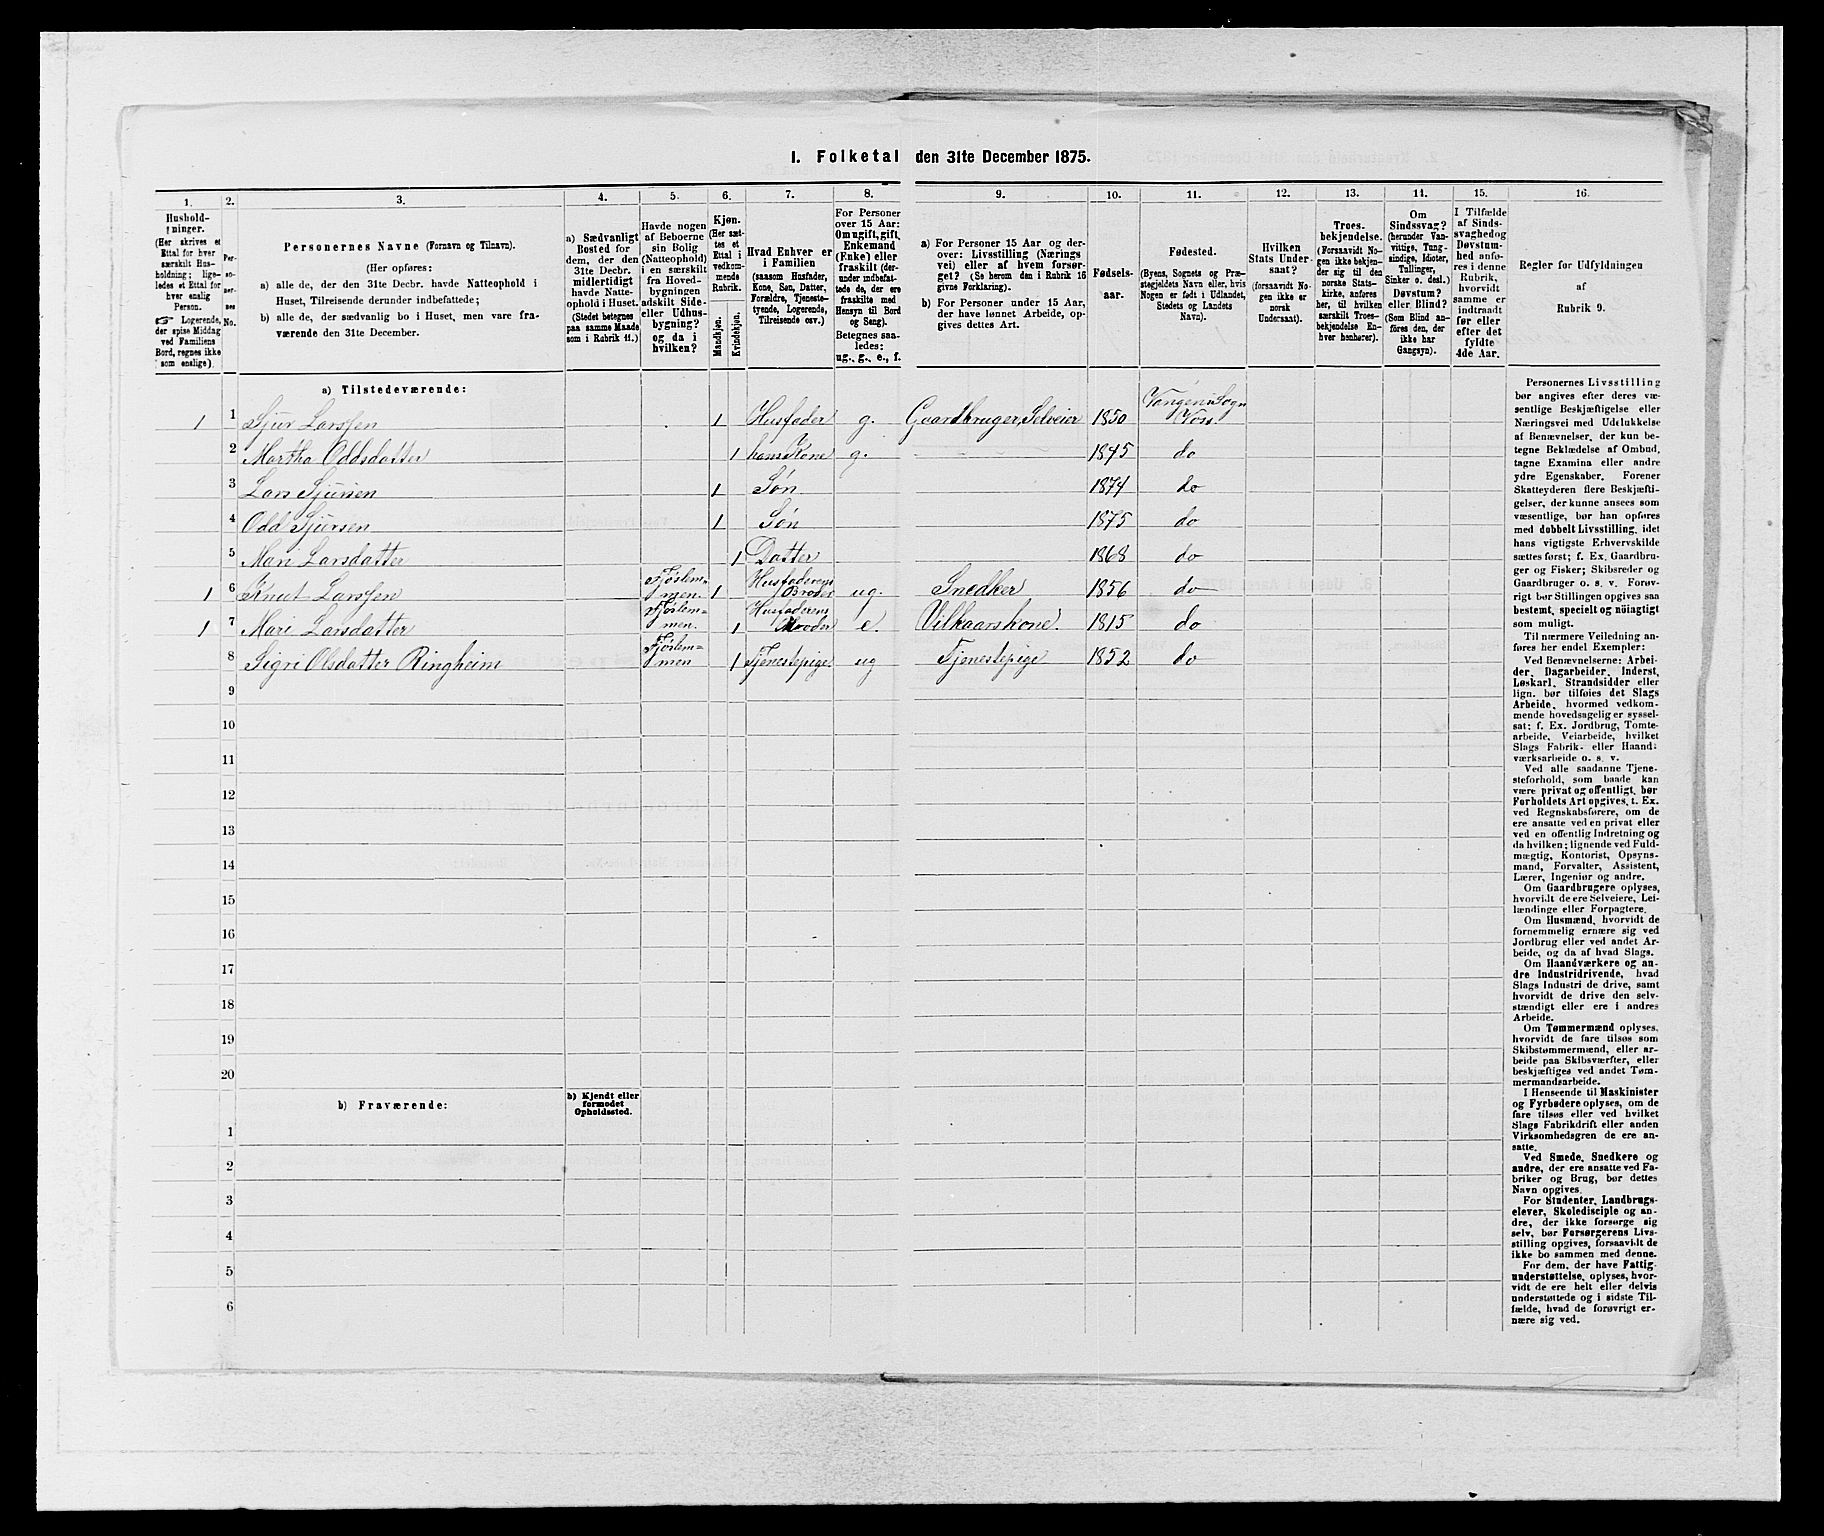 1. Folketal den 31te December 1875.
1. 2. 3. 4. 5. 6. 7. 8. 9. 10. 11. 12. 13. 14. 15. 16.
Hushold-
ninger.
(Her skrives et
Ettal for hver
særskilt Hus-
holdning; lige-
ledes et Ettal for
hver enslig
Person.
☞ Logerende,
der spise Middag
ved Familiens
Bord, regnes ikke
som enslige).
Per-
so-
ner-
nes
No.
Personernes Navne (Fornavn og Tilnavn).
(Her opføres:
a) alle de, der den 31te Decbr. havde Natteophold i
Huset, Tilreisende derunder indbefattede;
b) alle de, der sædvanlig bo i Huset, men vare fra-
værende den 31te December.
a) Sædvanligt
Bosted for
dem, der den
31te Decbr.
midlertidigt
havde Natte-
ophold i Huset.
(Stedet betegnes
paa samme Maade
som i Rubrik 11.)
Havde nogen
af Beboerne
sin Bolig
(Natteophold)
i en særskilt
fra Hoved-
bygningen
adskilt Side-
eller Udhus-
bygning?
og da i
hvilken?
Kjøn.
(Her sæt-
tes et
Ettal i
vedkom-
mende
Rubrik.
Mandkjøn.
Kvindekjøn.
Hvad Enhver er
i Familien
(saasom Husfader,
Kone, Søn, Datter,
Forældre, Tjeneste-
tyende, Logerende,
Tilreisende osv.)
For Personer
over 15 Aar:
Om ugift, gift,
Enkemand
(Enke) eller
fraskilt (der-
under indbefat-
tede de, der ere
fraskilte med
Hensyn til Bord
og Seng).
Betegnes saa-
ledes:
ug., g., e., f.
a) For Personer 15 Aar og der-
over: Livsstilling (Nærings
vei) eller af hvem forsør-
get? (Se herom den i Rubrik 16
givne Forklaring).
b) For Personer under 15 Aar,
der have lønnet Arbeide, op-
gives dettes Art.
Fødsels-
aar.
Fødested.
(Byens, Sognets og Præ-
stegjeldets Navn eller, hvis
Nogen er født i Udlandet,
Stedets og Landets
Navn).
Hvilken
Stats Under-
saat?
(forsaavidt No-
gen ikke er
norsk
Undersaat).
Troes-
bekjendelse.
(Forsaavidt No-
gen ikke bekjen-
der sig til den
norske Stats-
kirke, anføres
her, til hvilken
særskilt Troes-
bekjendelse En-
hver henhører).
Om
Sindssvag?
(herunder Van-
vittige, Tung-
sindige, Idioter,
Tullinger,
Sinker o. desl.)
Døvstum?
eller Blind?
(Som Blind an-
føres den, der
ikke har
Gangsyn).
I Tilfælde
af Sinds-
svaghed og
Døvstum-
hed anfø-
res i denne
Rubrik,
hvorvidt
samme er
indtraadt
før eller
efter det
fyldte
4de Aar.
Regler for Udfyldningen
af
Rubrik 9.
a) Tilstedeværende:
1 1 Sjur Larssen 1 Husfader g. Gaardbruger, Selveier 1850 Vangens Sogn Voss
2 Martha Oddsdatter 1 hans Kone g. 1845 do
3 Lars Sjursen 1 Søn 1874 do
4 Odd Sjursen 1 Søn 1875 do
5 Mari Larsdatter 1 Datter 1868 do
1 6 Knut Larssen Fjöslem-men. 1 Husfaderens Broder ug. Snedker 1856 do
1 7 Mari Larsdatter Fjöslem-men. 1 Husfaderens Moder e. Vilkaarskone. 1815 do
8 Sigri Olsdatter Ringheim Fjöslem-men 1 Tjenestepige ug Tjenestepige 1852 do
9
10
11
12
13
14
15
16
17
18
19
20
b) Fraværende:
b) Kjendt eller
formodet
Opholdssted.
1
2
3
4
5
6
Personernes Livsstilling
bør angives efter deres væ-
sentlige Beskjæftigelse eller
Næringsvei med Udelukkelse
af Benævnelser, der kun be-
tegne Beklædelse af Ombud,
tagne Examina eller andre
ydre Egenskaber. Forener
Skatteyderen flere Beskjæfti-
gelser, der kunne ansees som
væsentlige, bør han opføres
med dobbelt Livsstilling, idet
hans vigtigste Erhvervskilde
sættes først; f. Ex. Gaardbru-
ger og Fisker; Skibsreder og
Gaardbruger o. s. v. Forøv-
rigt bør Stillingen opgives saa
bestemt, specielt og nøiagtigt
som muligt.
Til nærmere Veiledning an-
føres her endel Exempler:
Ved Benævnelserne: Arbei-
der, Dagarbeider, Inderst,
Løskarl, Strandsidder eller
lign. bør tilføies det Slags
Arbeide, hvormed vedkom-
mende hovedsagelig er syssel-
sat; f. Ex. Jordbrug, Tomte-
arbeide, Veiarbeide, hvilket
Slags Fabrik- eller Haand-
værksarbeide o. s. v.
Ved alle saadanne Tjene-
steforhold, som baade kan
være privat og offentligt, bør
Forholdets Art opgives, t. Ex.
ved Regnskabsførere, om de
ere ansatte ved en privat eller
ved en offentlig Indretning og
da hvilken; lignende ved Fuld-
mægtig, Kontorist, Opsyns-
mand, Forvalter, Assistent,
Lærer, Ingeniør og andre.
Om Gaardbrugere oplyses,
hvorvidt de ere Selveiere, Lei-
lændinge eller Forpagtere.
Om Husmænd, hvorvidt de
fornemmelig ernære sig ved
Jordbrug eller ved andet Ar-
beide, og da af hvad Slags.
Om Haandværkere og an-
dre Industridrivende, hvad
Slags Industri de drive, samt
hvorvidt de drive den selv-
stændigt eller ere i andres
Arbeide.
Om Tømmermænd oplyses,
hvorvidt de fare tilsøs som
Skibstømmermænd, eller ar-
beide paa Skibsværfter, eller
beskjæftiges ved andet Tøm-
mermandsarbeide.
I Henseende til Maskinister
og Fyrbødere oplyses, om de
fare tilsøs eller ved hvilket
Slags Fabrikdrift eller anden
Virksomhedsgren de ere an-
satte.
Ved Smede, Snedkere og
andre, der ere ansatte ved Fa-
briker og Brug, bør dettes
Navn opgives.
For Studenter, Landbrugs-
elever, Skoledisciple og an-
dre, der ikke forsørge sig
selv, bør Forsørgerens Livs-
stilling opgives, forsaavidt de
ikke bo sammen med denne.
For dem, der have Fattig-
understøttelse, oplyses, hvor-
vidt de ere helt eller delvis
understøttede og i sidste Til-
fælde, hvad de forøvrigt er-
nære sig ved.